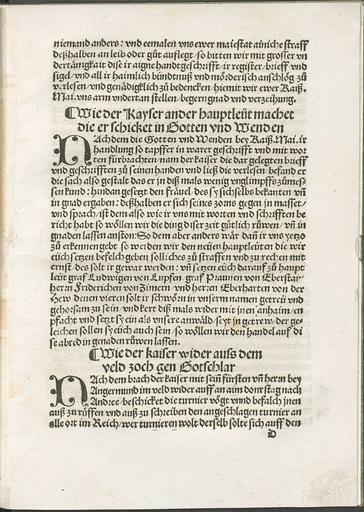 niemand anders : vnd eemalen vns ewer maiestat ainiche straff
deßhalben an leib oder gůt aufflegt so bitten wir mit grosser vn
dertänigkait dise ir aigne handtgeschrifft ir register brieff vnd
sigel vnd all ir haimlich bündtnuß vnd mörderisch anschlög zů
verlesen vnd genädigklich zů bedencken hiemit wir ewer Kaiß.
Mai. vns arm vndertan stellen begern gnad vnd verzeihung.
¶ Wie der Kayser ander hauptleüt machet
die er schicket in Gotten vnd Wenden
NAchdem die Gotten vnd Wenden bey Kaiß. Mai. ir
handlung so tapffer in warer geschrifft vnd mit wor
ten fürbrachten nam der kaiser die dar gelegten brieff
vnd geschrifften zů seinen handen vnd ließ die verlesen befand er
die sach also gestalt das er in diß mals wenig vnglimpffs zůmes-
sen kund : handan gesetzt den frauel des sy sich selbs bekanten vñ
in gnad ergaben : deßhalben er sich seines zorns gegen in masset
vnd sprach ist dem also wie ir vns mit worten vnd schrifften be
richt habt so wöllen wir die ding diser zeit gütlich růwen vñ in
gnaden lassen anston. So dem aber anders wär dañ ir vns yetzo
zů erkennen gebt so werden wir den neüen hauptleüten die wir
eüch setzen befelch geben solliches zů straffen vnd zů rechen mit
ernst des solt ir gewar werden : vñ setzen eüch darauff zů haupt
leüt graf Ludwigen von Lupfen graf Pauncen von Eberstain
herrn Friderichen von Zimern vnd herren Eberharten von der
Hew denen vieren solt ir schwören in vnserm namen getreü vnd
gehorsam zů sein vnd kert diß mals wider mit jnen anhaim en
pfacht vnd setzt sy ein als vnsere anwäld seyt in getrew der ge-
leichen sollen sy eüch auch sein so wöllen wir den handel auf di
se abred in genaden růwen lassen.
¶ Wie der kaiser wider auss dem
veld zoch gen Gotschlar
NAch dem brach der kaiser mit sein fürsten vñ herrn bey
Angermund im veld wider auff an aim donrstag nach
Andree beschicket die turnier vögt vnnd befalch jnen
auß zů rüffen vnd auß zů schreiben den angeschlagen turnier an
alle ort im Reich wer turnieren wolt der selb solte sich auff den